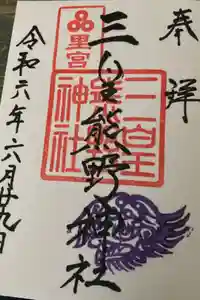 奉拝
三皇熊野神社
里宮
三皇
熊野
神社
令和六年六月廿九日